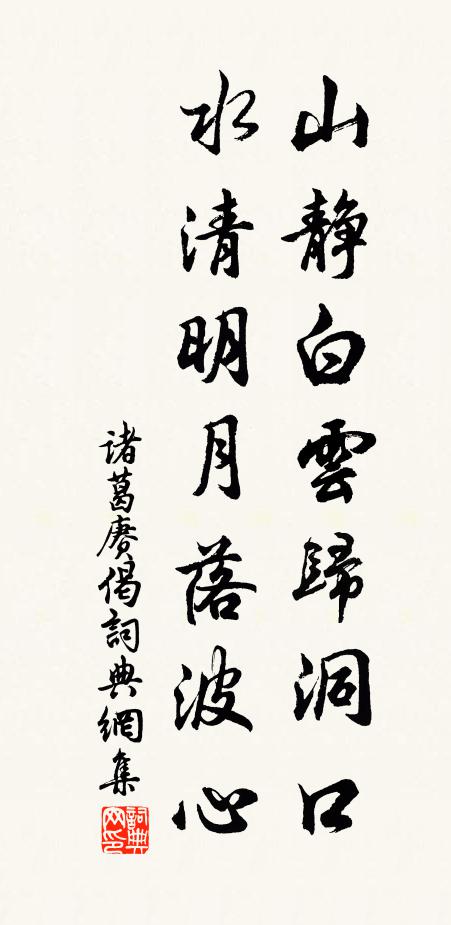 山静白雲歸洞口
水清明月落波心
诸葛赓偈詞典網集
詞典网印